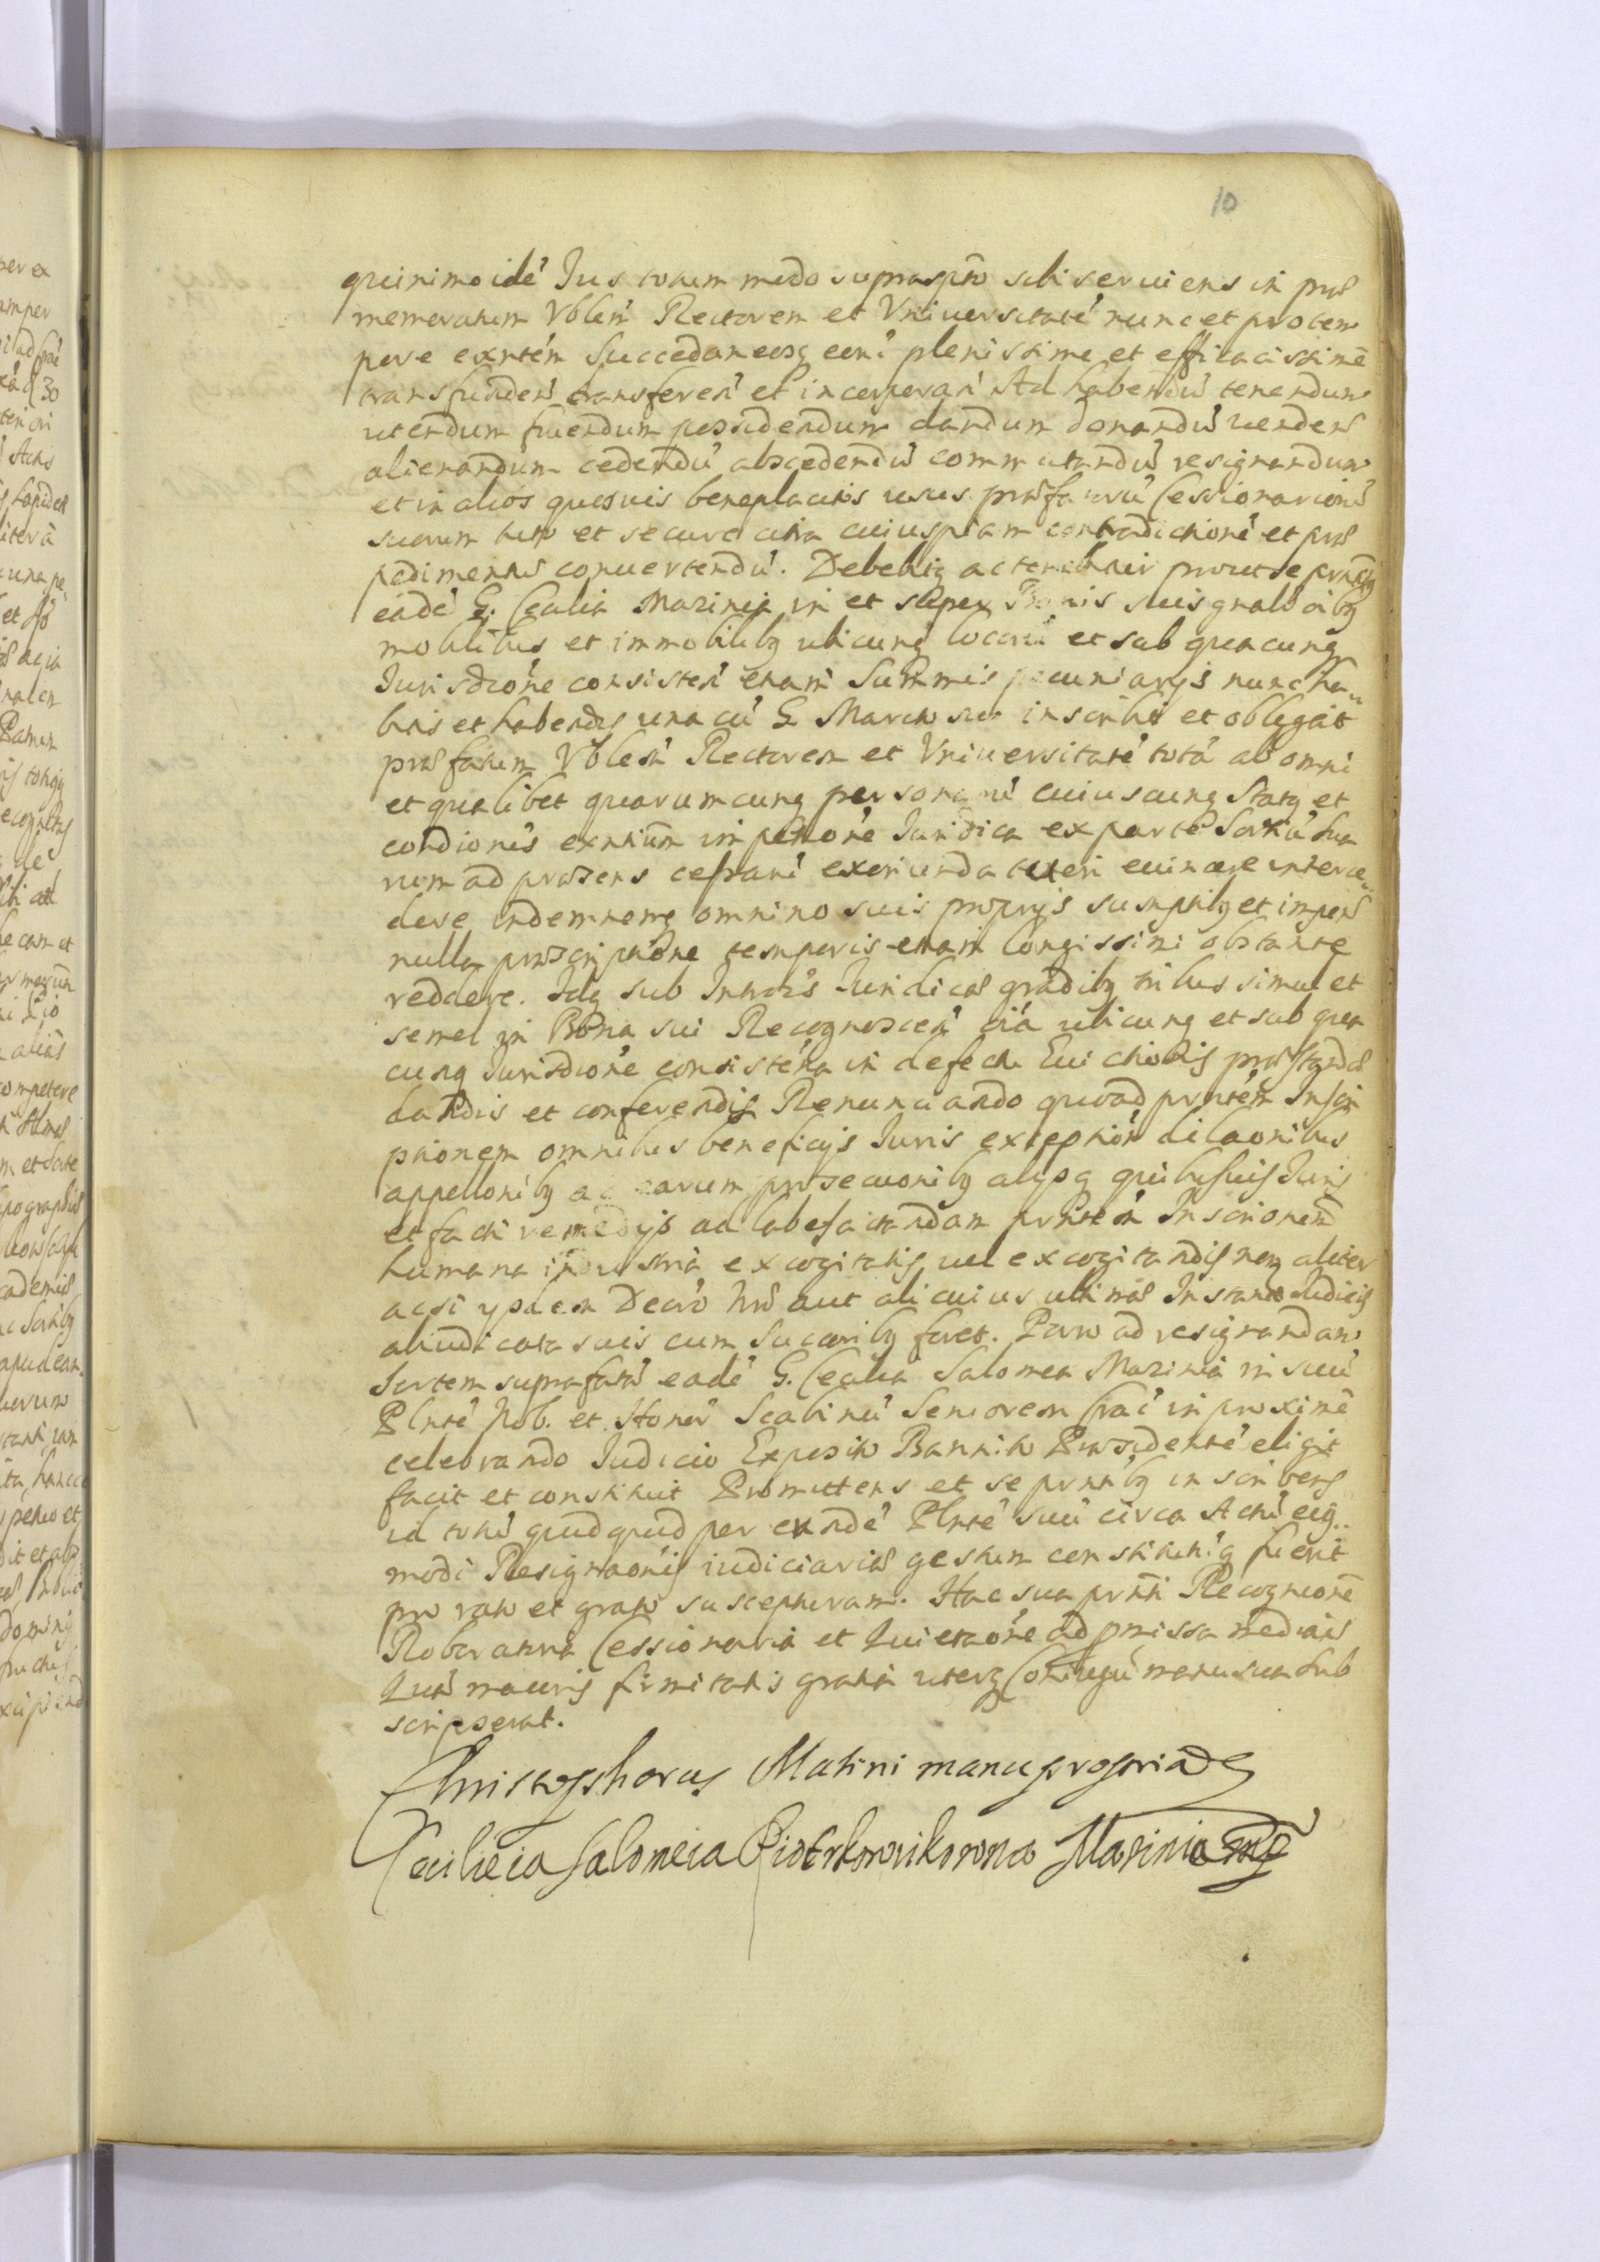 10
quinimo idē Jus totum modo supraspto sibi seruiens in præ
memoratum Vblem̄ Rectorem et Vniuersitatē nunc et pro tem
pore exntem Succedaneosq eorū plenissime et efficacissimē
transfunden̄ transferen̄ et incorporan̄ Ad habendū tenendum
utendum fruendum possidendum dandum donandū venden̄
alienandum cedendū abscedendū commutandū resignandum
et in alios quosuis beneplacitis usus præfatorū Cessionariorū
suorum tuto et secure citra cuiuspiam contradictionē et præ
pedimentis conuertendū. Debebitq ac tenebitur prout se prntibq
eadē G. Cecilia Mazinia in et super Bonis suis gnalr oibq
mobilibus et immobilibq ubicunq locorū et sub quacunq
Jurisdcione consisten̄ etiam Summis pecuniarijs nunc ha
bitis et habendis una cū G. Marito suo inscribit et obligat
præfatum Vblem̄ Rectorem et Vniuersitatē totā ab omni
et qualibet quarumcunq personarū cuiuscunq Statq et
condionis exntium impetione Juridica ex parte Sortiū sua
rum ad præsens cessarū exoriunda tueri euincere interce
dere indemnemq omnino suis proprijs sumptibq et impens
nulla præscriptione temporis etiam longissimi obstante
reddere. Idq sub Introis Juridicas gradibq tribus simul et
semel in Bona sui Recognoscen̄ oia ubicunq et sub qua
cunq Jurisdcione consistētia in defectu Euictionis præstandæ
dandis et conferendis Renunciando quoad prntem Inscri
ptionem omnibus beneficijs Juris exception dilaonibus
appellonibq prosecuonibq alijsq quibusuis Juris
et facti remedijs ad labefactandam prntem Inscrionem
humana industria excogitatis uel excogitandis non aliter
acsi ipsa Decro aut alicuius ultimæ Instantiæ Judicij
abiudicata suis cum Succoribq foret. Porro ad resignandam
Sortem suprafatā eadē G. Cecilia Salomea Mazinia in suū
Plntē Nob. et Honor̄ Scabinū Seniorem Crac in proximē
celebrando Judicio Exposito Bannito Præsidentē eligit
facit et constituit Promittens et se prntibq inscribens
id totū quidquid per eundē Plntē suū circa Actū eiq
modi Resignaonis iudiciariæ gestum constitutūq fuerit
pro rato et grato suscepturam. Hac sua prnti Recognione
Roboratoria Cessionaria et Quietaone ad præmissa mediān
Quā maioris firmitatis gratia uterq Coniugū manu sua sub
scripserat.
Christophorus Matini manu propria
Caecilieia Salomeia Piotrkowikowna Mazinia mp